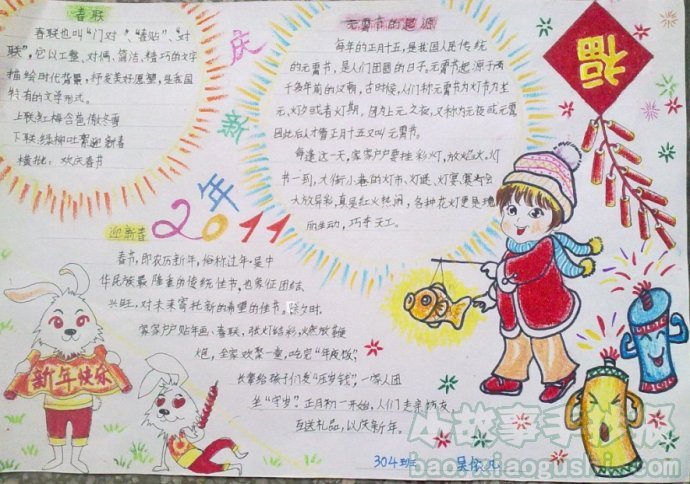 春联
春联也叫“门对”、“春贴”、“对
联”,它以工整、对偶、简洁、精巧的文字
描绘时代背景,抒发美好愿望,是我国
特有的文学形式。
上联:红梅含苞傲冬雪
下联:绿柳吐絮迎新春
横批:欢庆春节
庆新年
2011
元宵节的起源
每年的正月十五,是我国人民传统
的元宵节,是人们团圆的日子。元宵节起源于两
千多年前的汉朝,古时候,人们称元宵节为灯节为上
元、灯夕或者灯期。因为上元之夜,又称为元夜或元宵
因此后人才管正月十五又叫元宵节。
每逢这一天,家家户户要挂彩灯,放焰火。灯
节一到,大街小巷的灯市、灯谜、灯宴、赛灯会
大放异彩,真是红火热闹,各种花灯更是栩
而生动,巧手天工。
福
迎新春
春节,即农历新年,俗称过年。是中
华民族最隆重的传统佳节,也象征团结、
兴旺,对未来寄托新的希望的佳节。除夕时,
家家户户贴年画,春联,张灯结彩,燃放鞭
炮,全家欢聚一堂,吃完“年夜饭”
长辈给孩子们发“压岁钱”,一家人团
坐“守岁”?正月初一开始,人们走亲访友
互送礼品,以庆新年。
新年快乐
304班
吴
小故事手抄报
baoxiaogushi.com